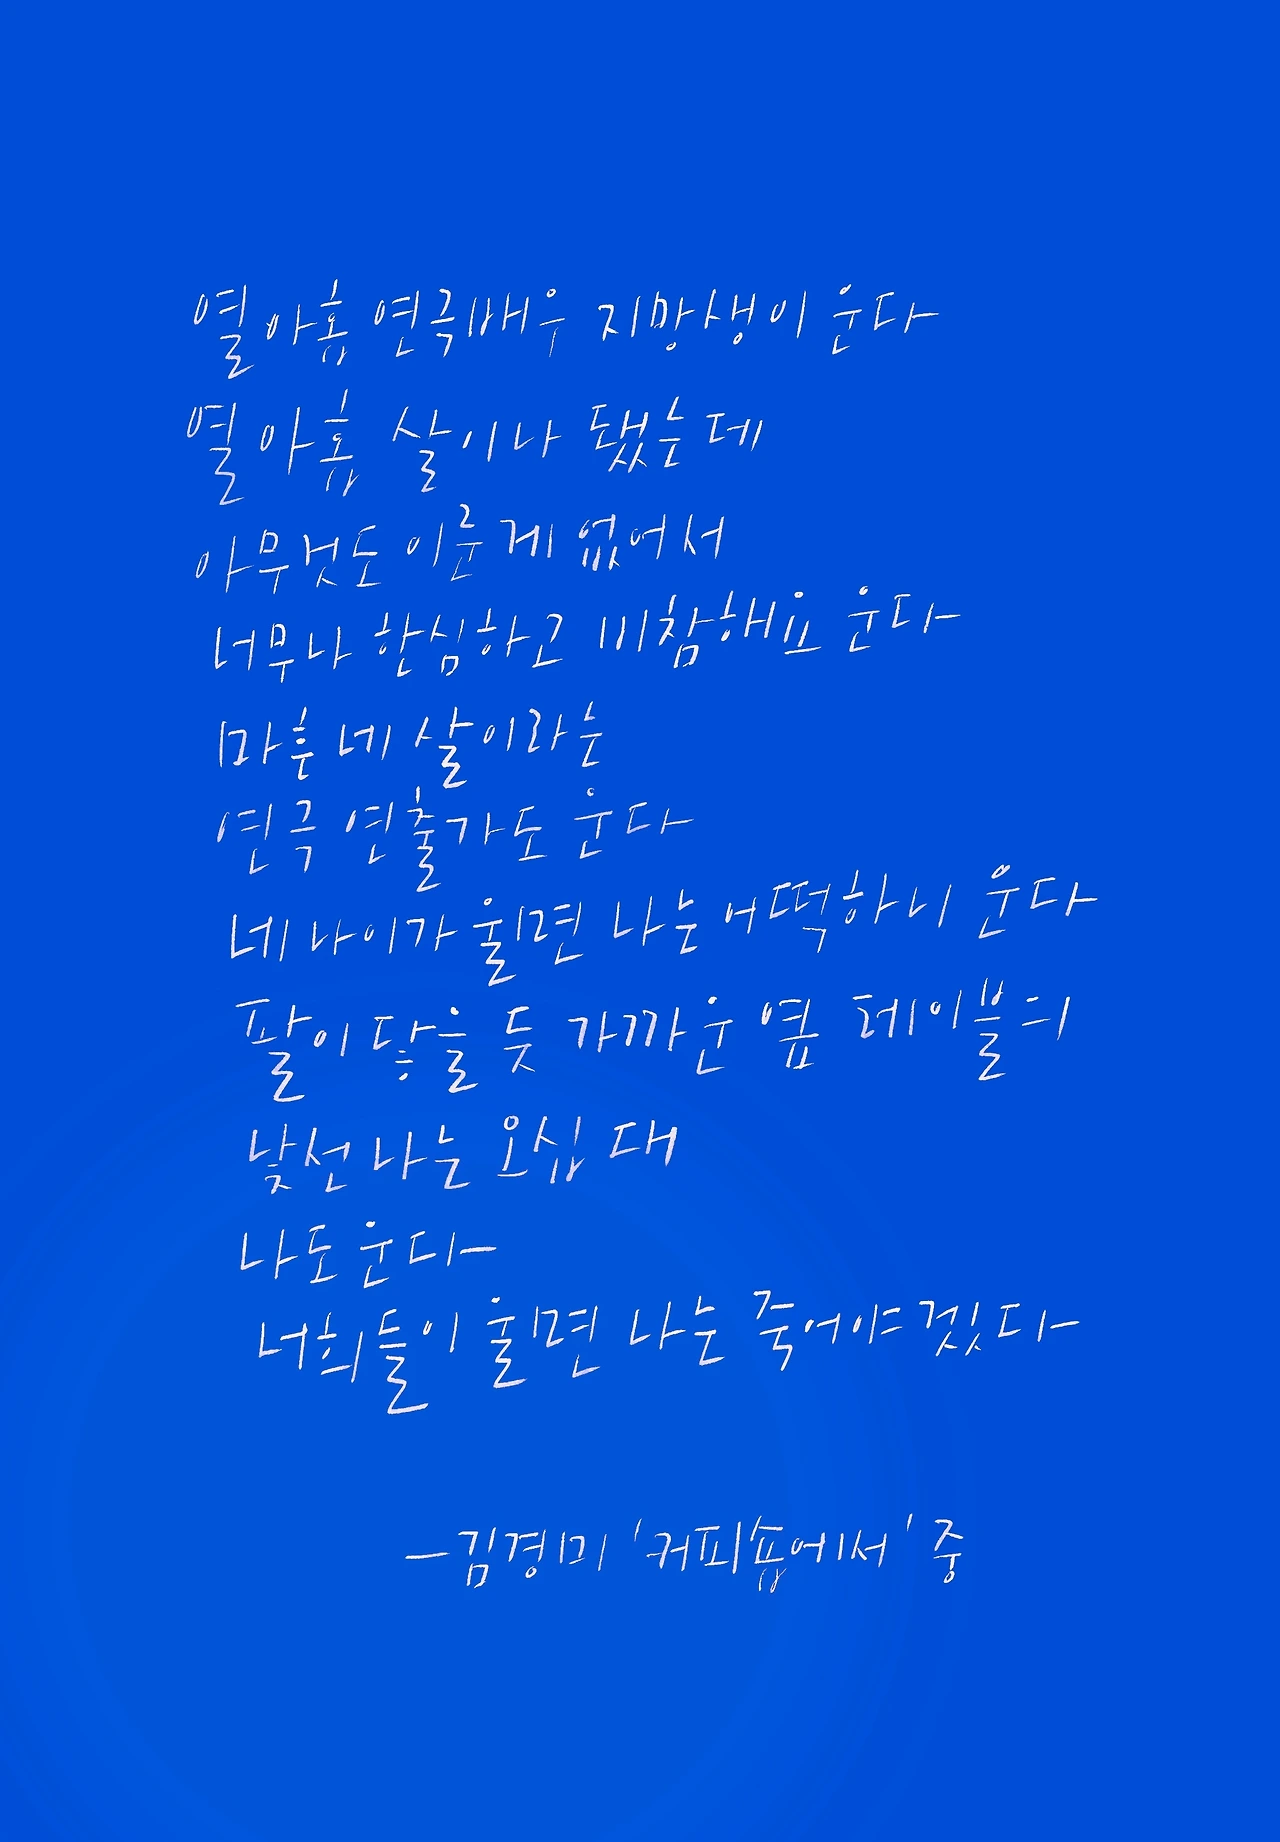 열아홉 연극배우 지망생이 운다
열아홉 살이나 됐는데
아무것도 이룬게 없어서
너무나 한심하고 비참해요 운다
마흔 네 살이라는
연극 연출가도 운다
네 나이가 울면 나는 어떡하니 운다
팔이 닿을 듯 가까운 옆 테이블의
낯선 나는 오십 대
나도 운다
너희들이 울면 나는 죽어야겠다
-김경미 '커피숍에서' 중